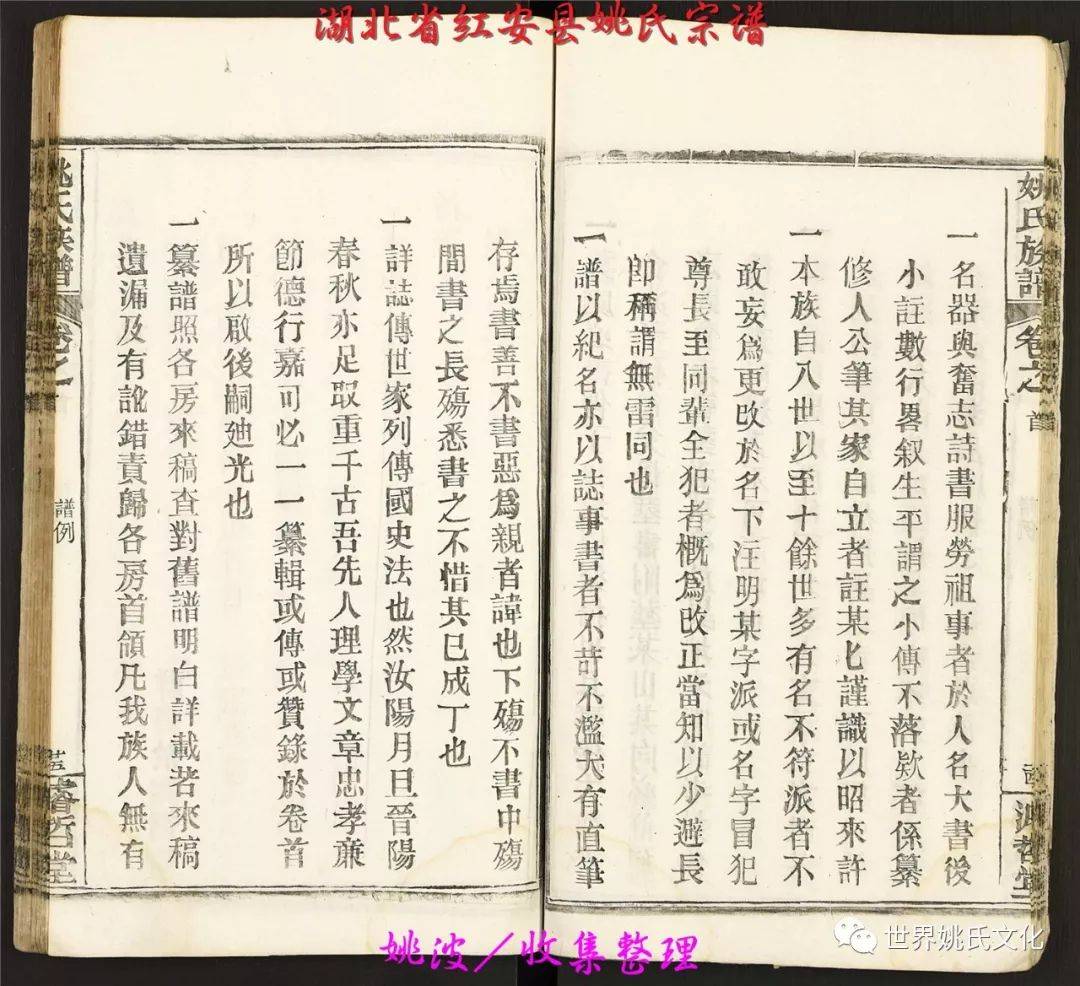 湖北省红安县姚氏宗谱
姚氏族譜
卷之首
一名器與奮志詩書服勞祖事者於人名大書後
小註數行畧叙生平謂之小傳不落欵者係纂
修人公筆其家自立者註某匕謹識以昭來許
一本族自八世以至十餘世多有名不符派者不
敢妄爲更改於名下注明某字派或名字冒犯
尊長至同輩全犯者槪爲改正當知以少避長
卽稱謂無雷同也
一譜以紀名亦以誌事書者不苛不濫大有直筆
存焉書善不書惡爲親者諱也下殤不書中殤
間書之長殤悉書之不惜其已成丁也
一詳誌傳世家列傳國史法也然汝陽月旦晉陽
春秋亦足取重千古吾先人理學文章忠孝亷
節德行嘉可必一一纂輯或傳或贊錄於卷首
所以啟後嗣廸光也
一纂譜照各房來稿查對舊譜明白詳載若來稿
遺漏及有訛錯責歸各房首領凡我族人無有
姚氏族譜
卷之
譜例
睿哲堂
姚波/收集整理
世界姚氏文化